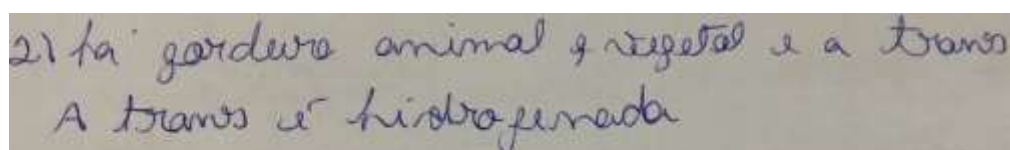 2) há gordura animal e vegetal e a trans
A trans é hidrogenada